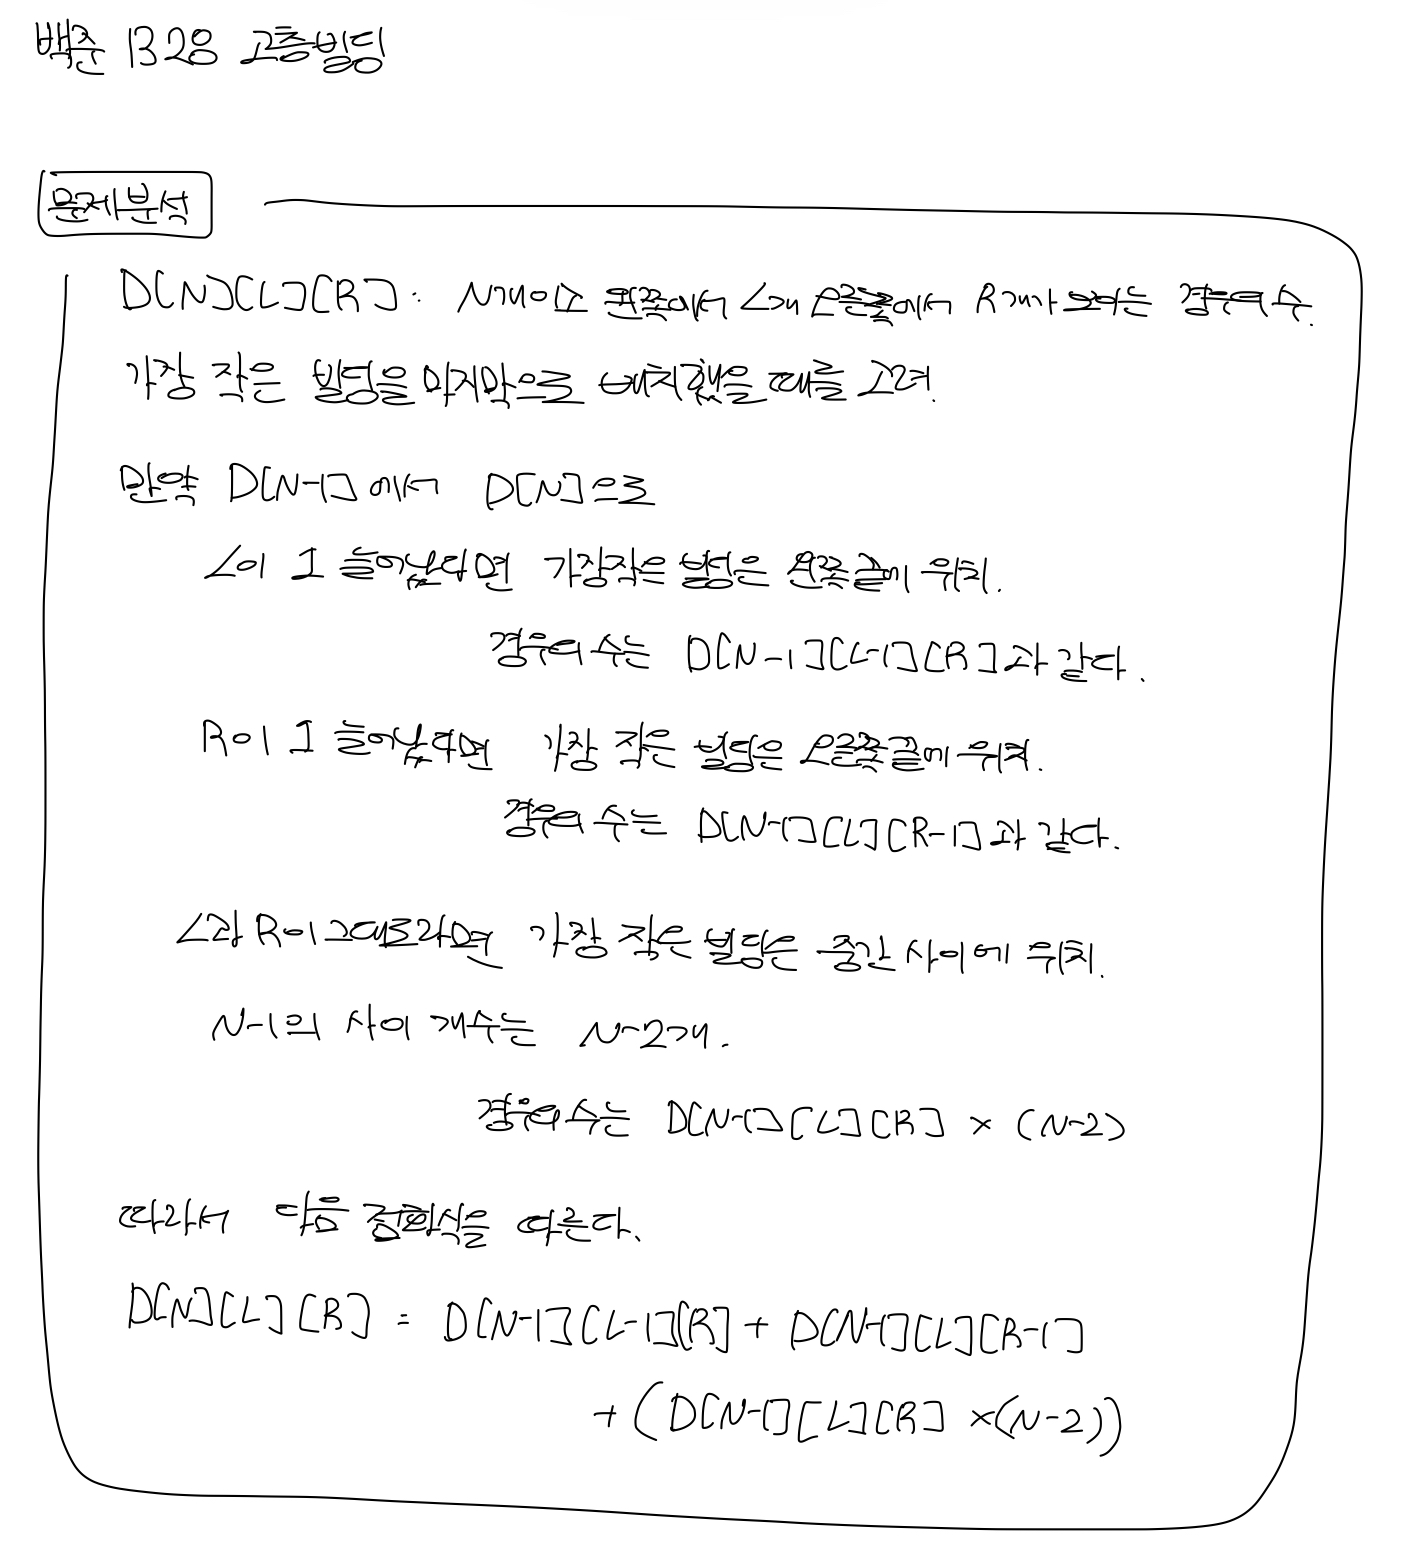 백준 1328 고층빌딩
문제분석
D[N][L][R] : N개이고 왼쪽에서 L개 오른쪽에서 R개가 보이는 경우의 수.
가장 작은 빌딩을 마지막으로 배치했을 때를 고려.
만약 D[N-1]에서 D[N]으로
L이 1 늘어났다면 가장작은 빌딩은 왼쪽끝에 위치.
경우의 수는 D[N-1][L-1][R]과 같다.
R이 1 늘어났다면 가장 작은 빌딩은 오른쪽끝에 위치.
경우의 수는 D[N-1][L][R-1]과 같다.
L과 R이 그대로라면 가장 작은 빌딩은 중간 사이에 위치.
N-1의 사이 개수는 N-2개.
경우의 수는 D[N-1][L][R] × (N-2)
따라서 다음 점화식을 따른다.
D[N][L][R] = D[N-1][L-1][R] + D[N-1][L][R-1]
+ (D[N-1][L][R] ×(N-2))